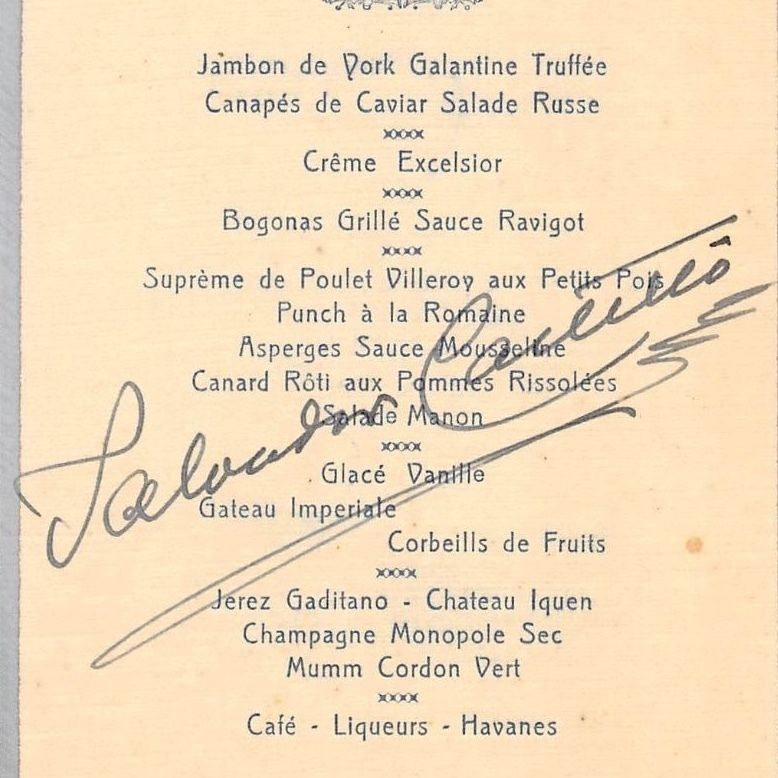 Jambon de York Galantine Truffée
Canapés de Caviar Salade Russe
Crême Excelsior
Bogonas Grillé Sauce Ravigot
Suprème de Poulet Villeroy aux Petits Pois
Punch à la Romaine
Asperges Sauce Mousseline
Canard Rôti aux Pommes Rissolées
Salade Manon
Salvador
Glacé Vanille
Gateau Imperiale
Corbeills de Fruits
Jerez Gaditano - Chateau Iquen
Champagne Monopole Sec
Mumm Cordon Vert
Café - Liqueurs - Havanes